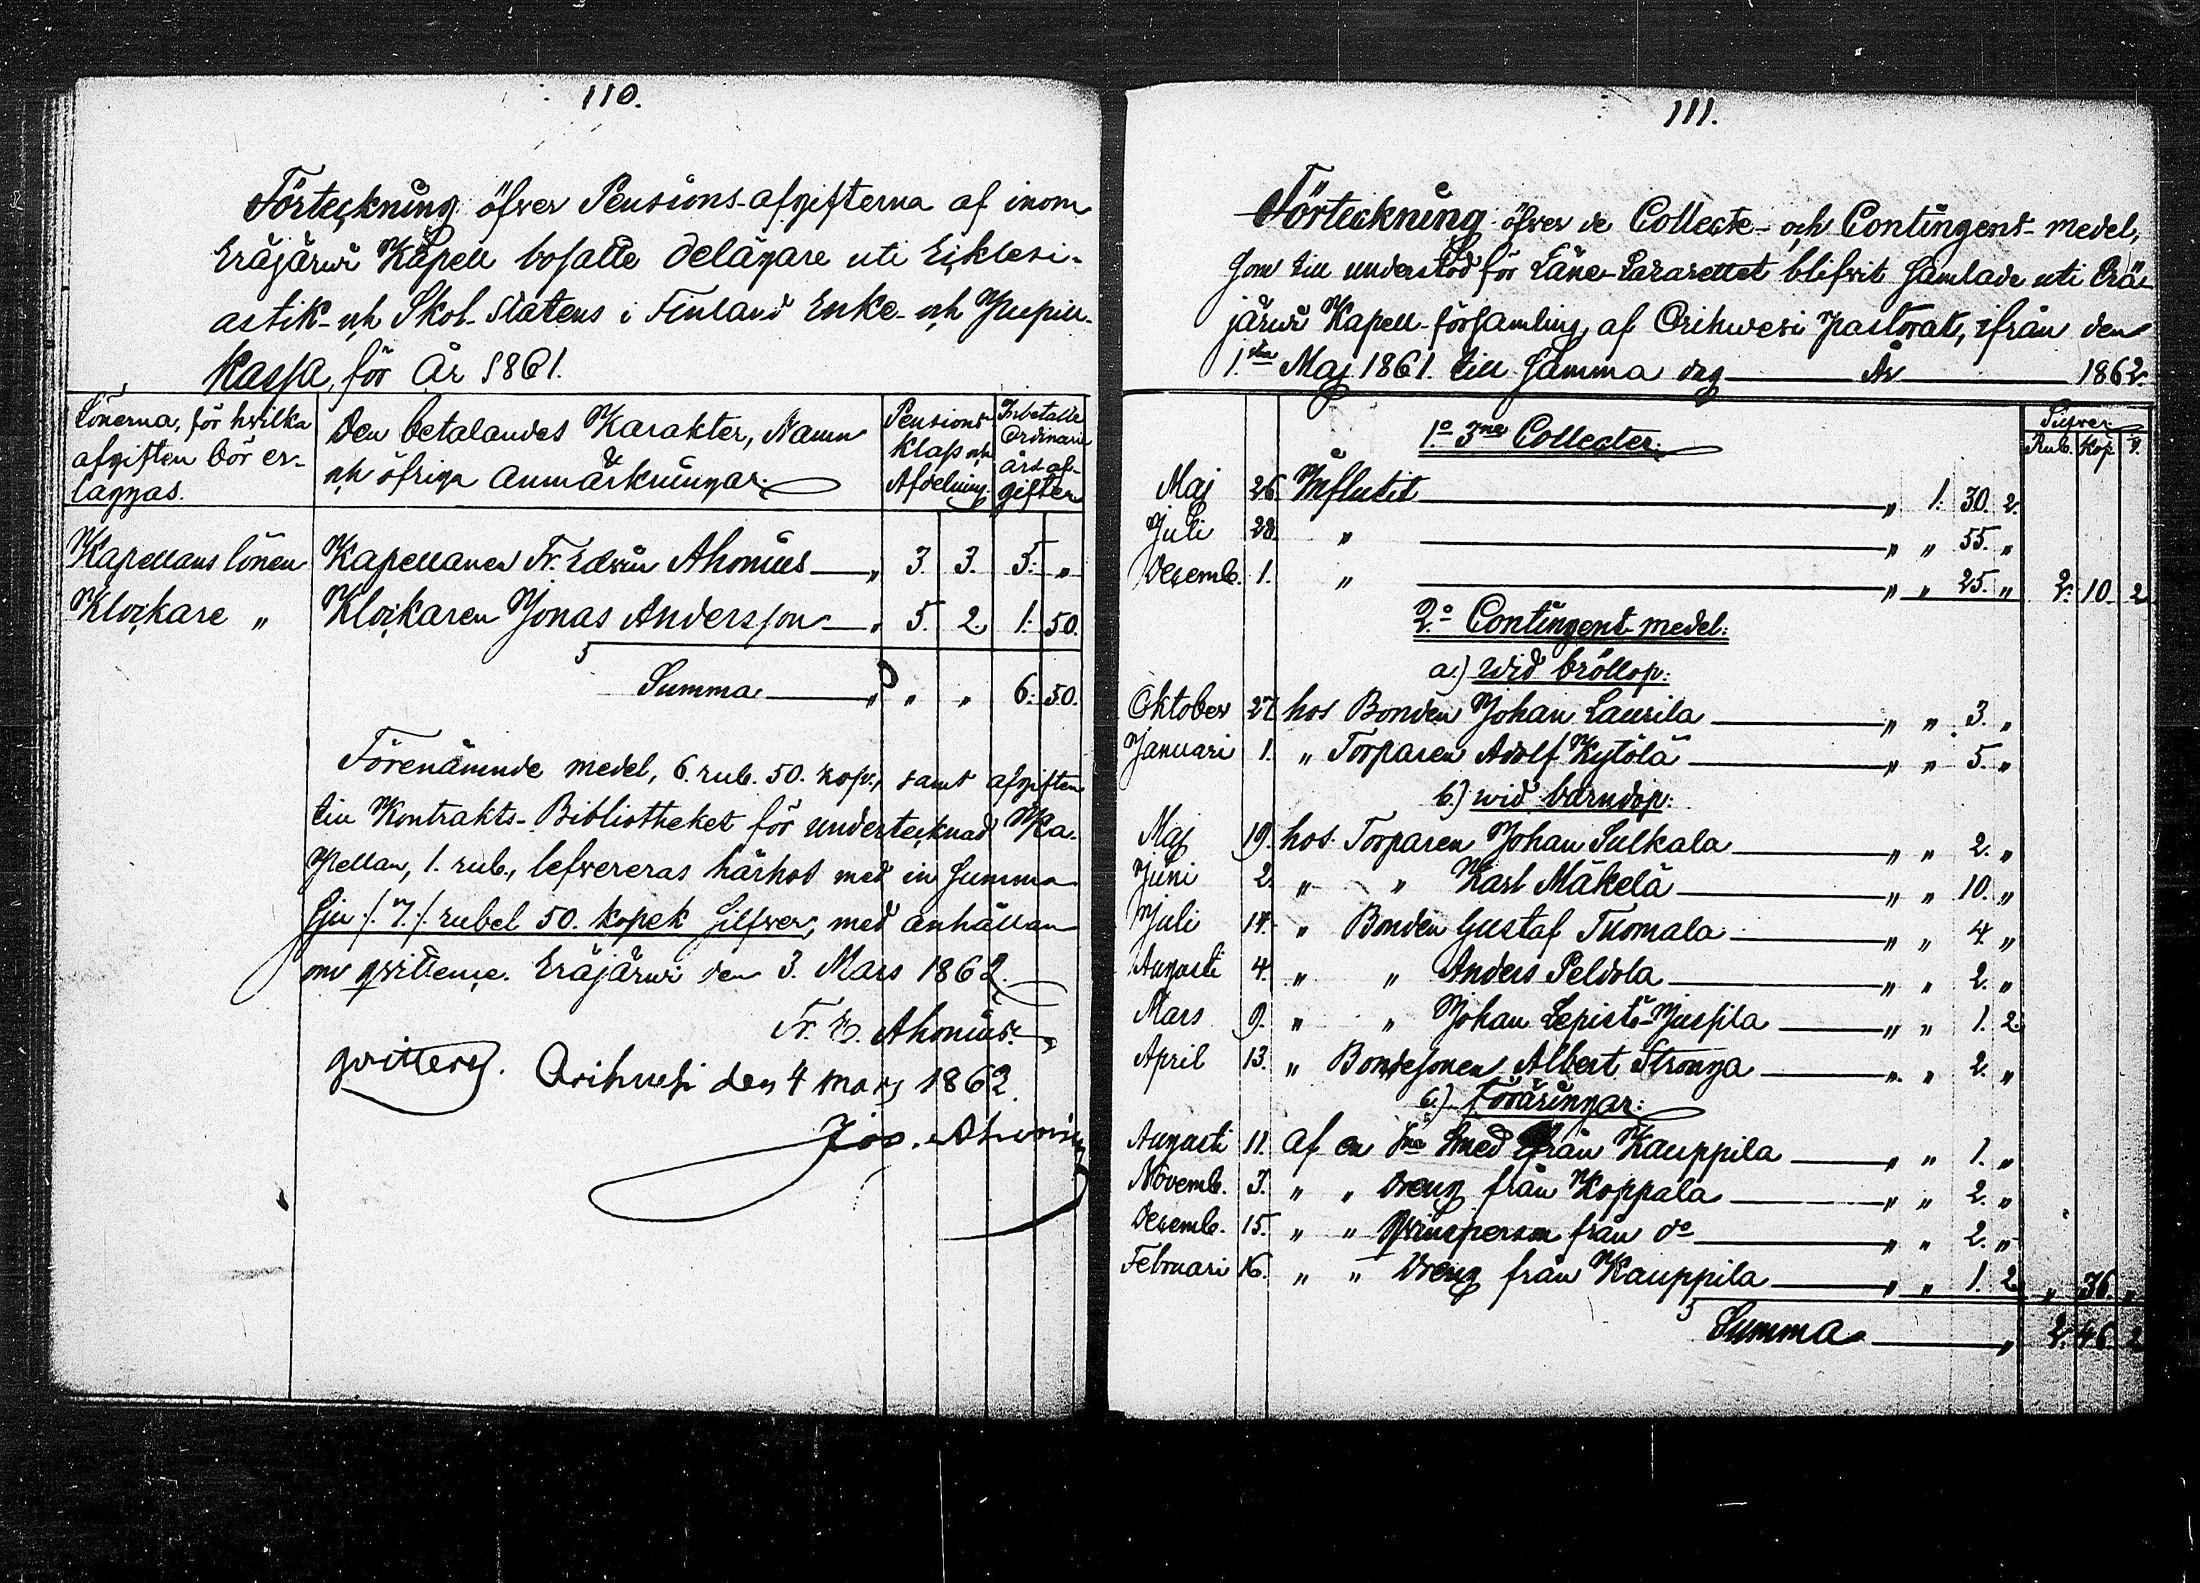 110.
Förteckning öfver Pensions-afgifterna af inom
Eräjärwi Kapell bosatte delägare uti Ecklesi-
astik- och Skol-Statens i Finland Enke- och Pupill-
Kassa, för År 1861.
Lönerna, för hvilka afgiften bör er-läggas. Den betalandes Karakter, Namn och öfriga Anmärkningar. Pensions Klass och Afdelning. Inbetalte Ordinarie års af-gifter
Kapellans lönen Kapellanen Fr. Edvin Ahonius " 3. 3. 5. "
Klockare " Klockaren Jonas Andersson " 5. 2. 1. 50.
Summa " " " 6. 50.
Förenämnde medel, 6. rub. 50. kop., samt afgiften
till Kontrakts-Bibliotheket för undertecknad Ka-
pellan, 1. rub., lefvereras härhos med in Summa
Sju /. 7. /. rubel 50. kopek Silfver, med anhållan
om qvittence. Eräjärwi den 3. Mars 1862.
Fr. E. Ahonius.
qvitteras. Orihvesi den 4 mars 1862.
Jos. Ahonius
111.
Förteckning öfver de Collecte- och Contingent-medel,
som till understöd för Läne-Lazarettet blifvit samlade uti Erä-
järwi Kapell-församling, af Orihwesi Pastorat, ifrån den
1.sta Maj 1861. till samma dag År 1862.
Silfver.
Rub. Kop.
1.o 3.ne Collecter:
Maj 26. Influtit " 1. 30. 2.
Juli 28. " " " 55. "
Decemb. 1. " " " 25. " 2. 10. 2
2.o Contingent-medel:
a.) wid bröllop:
Oktober 27. hos Bonden Johan Laurila " " 3. "
Januari 1. " Torparen Adolf Kytölä " " 5. "
b.) wid barndop:
Maj 19. hos Torparen Johan Sulkala " " 2. "
Juni 2. " " Karl Mäkelä " " 10. "
Juli 14. " Bonden Gustaf Tuomala " " 4. "
Augusti 4. " " Anders Peldola " " 2. "
Mars 9. " " Johan Lepistö-Jussila " " 1. 2.
April 13. " Bondesonen Albert Stronga " " 2. "
c.) Föräringar:
Augusti 11. af en Smed från Kauppila " " 1. "
Novemb. 3. " " Dreng från Koppala " " 2. "
Decemb. 15. " " Qvinsperson från do " " 2. "
Februari 16. " " Dreng från Kauppila " " 1. 2. " 36. "
Summa " 2. 46. 2